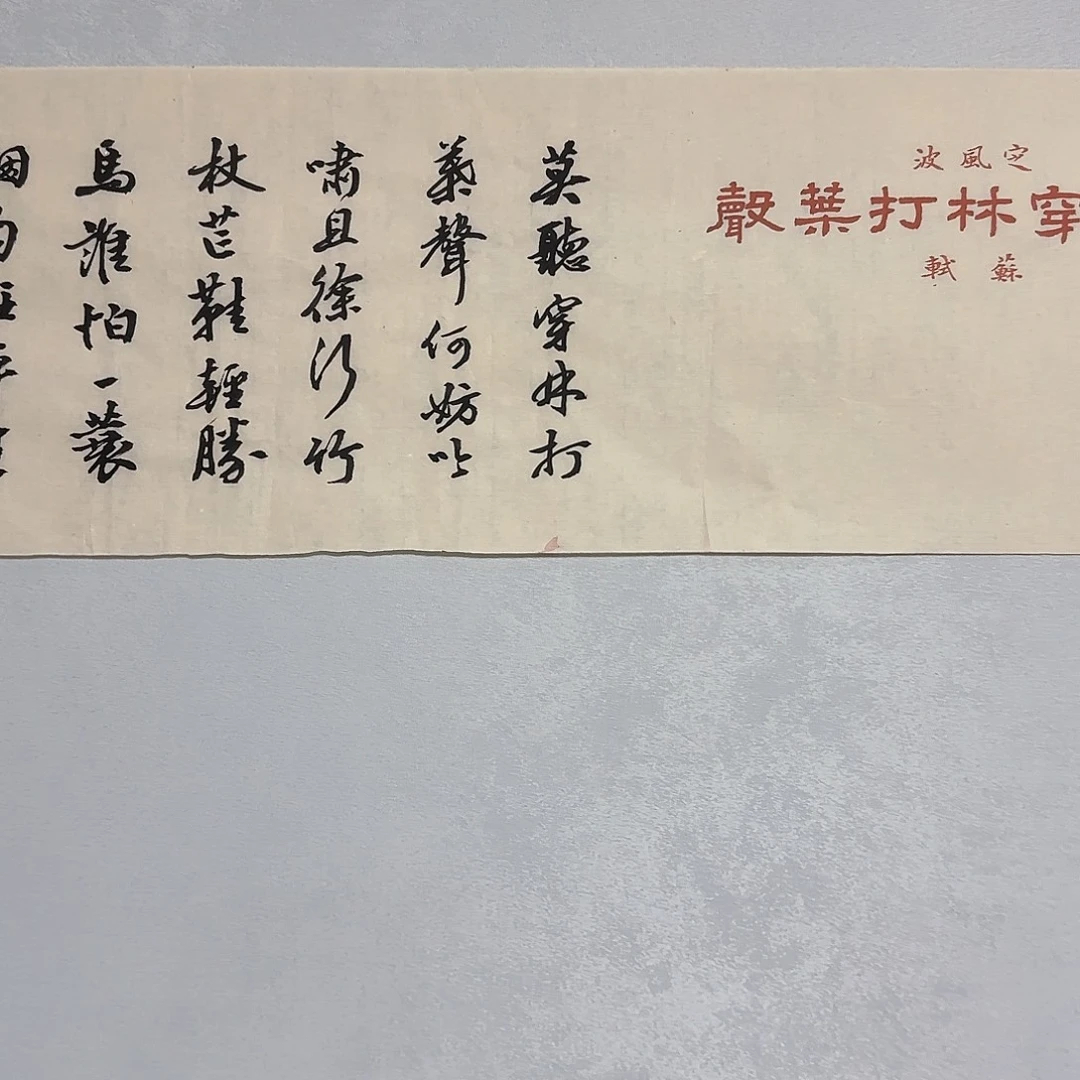 定風波
穿林打葉聲
蘇軾
莫聽穿林打
葉聲何妨吟
嘯且徐行竹
杖芒鞋輕勝
馬誰怕一蓑